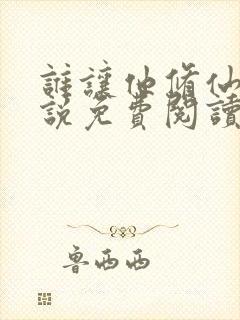 誰讓他修仙
說免費閱讀
魯西西